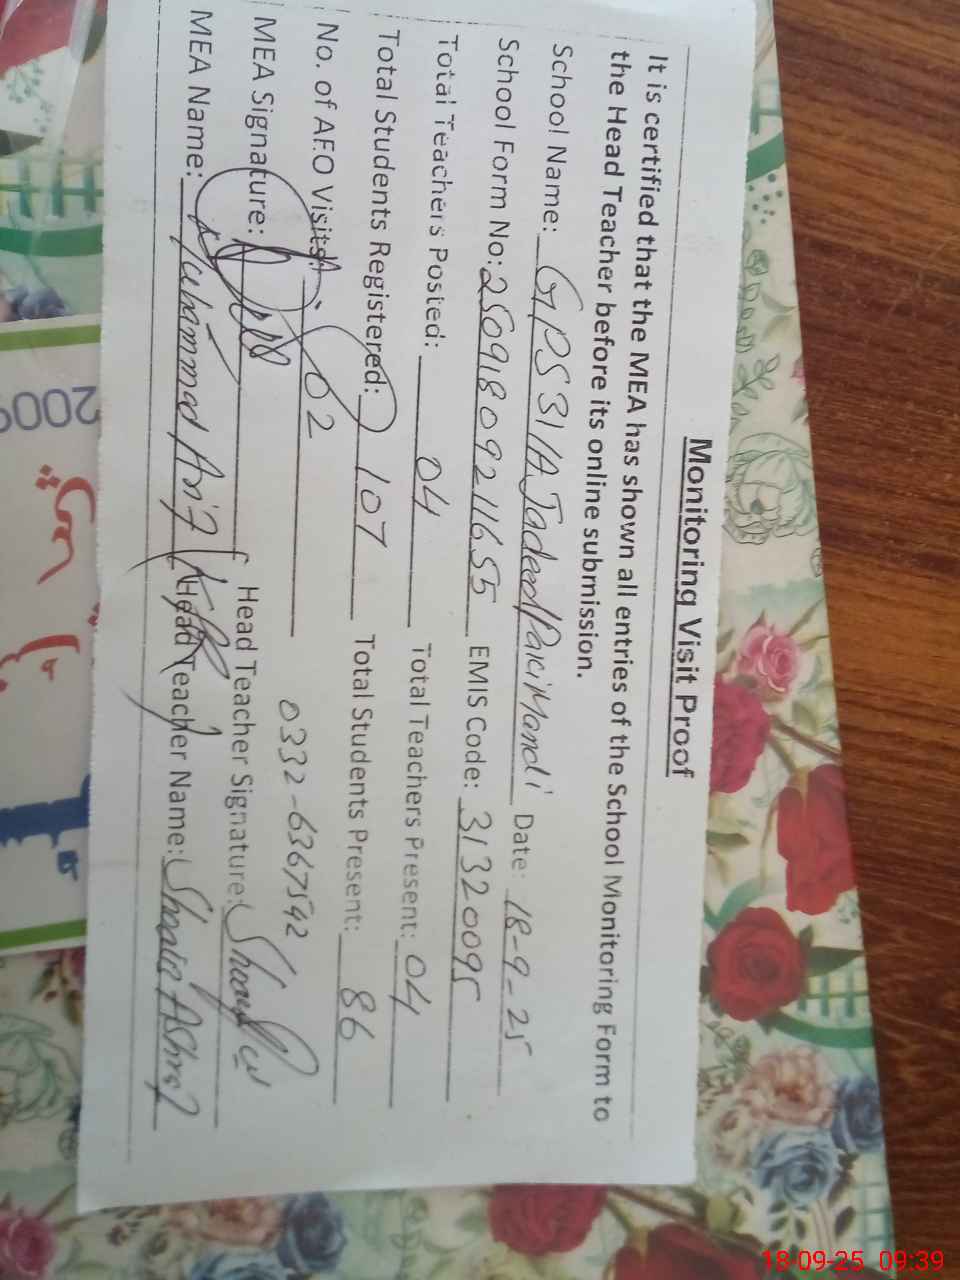 Monitoring Visit Proof
It is certified that the MEA has shown all entries of the School Monitoring Form to
the Head Teacher before its online submission.
School Name: GPS 31/1A Jadeed Paci Mandi Date: 18-9-25
School Form No: 25091809211655 EMIS Code: 31320095
Total Teachers Posted: 04 Total Teachers Present: 04
Total Students Registered: 107 Total Students Present: 86
No. of AEO Visits: 02
0332-6367592
MEA Signature: Head Teacher Signature:
MEA Name: Muhammad Arif Head Teacher Name: Shoaib Ashraf
2009
18-09-25 09:39